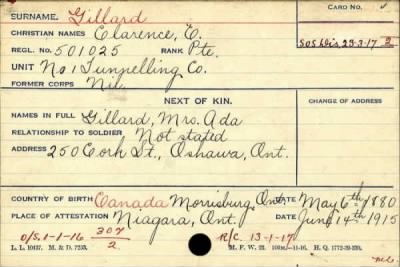 SURNAME. Gillard CARD NO.
CHRISTIAN NAMES Clarence, E.
REGL. NO. 501025 RANK Pte. S.O.S. Dis, 23-3-17 2
UNIT No 1 Tunnelling Co.
FORMER CORPS Nil.
NEXT OF KIN. CHANGE OF ADDRESS
NAMES IN FULL Gillard, Mrs. Ada
RELATIONSHIP TO SOLDIER Not stated
ADDRESS 250 Cork St., Oshawa, Ont.
COUNTRY OF BIRTH Canada Morrisburg, Ont. DATE May 6th 1880
PLACE OF ATTESTATION Niagara, Ont. DATE June 14th 1915
O/S. 1-1-16 307/2 R/C. 13-1-17
L. L. M. & D. 7253. M. F. W. 22. H. Q. 1772-39-339.